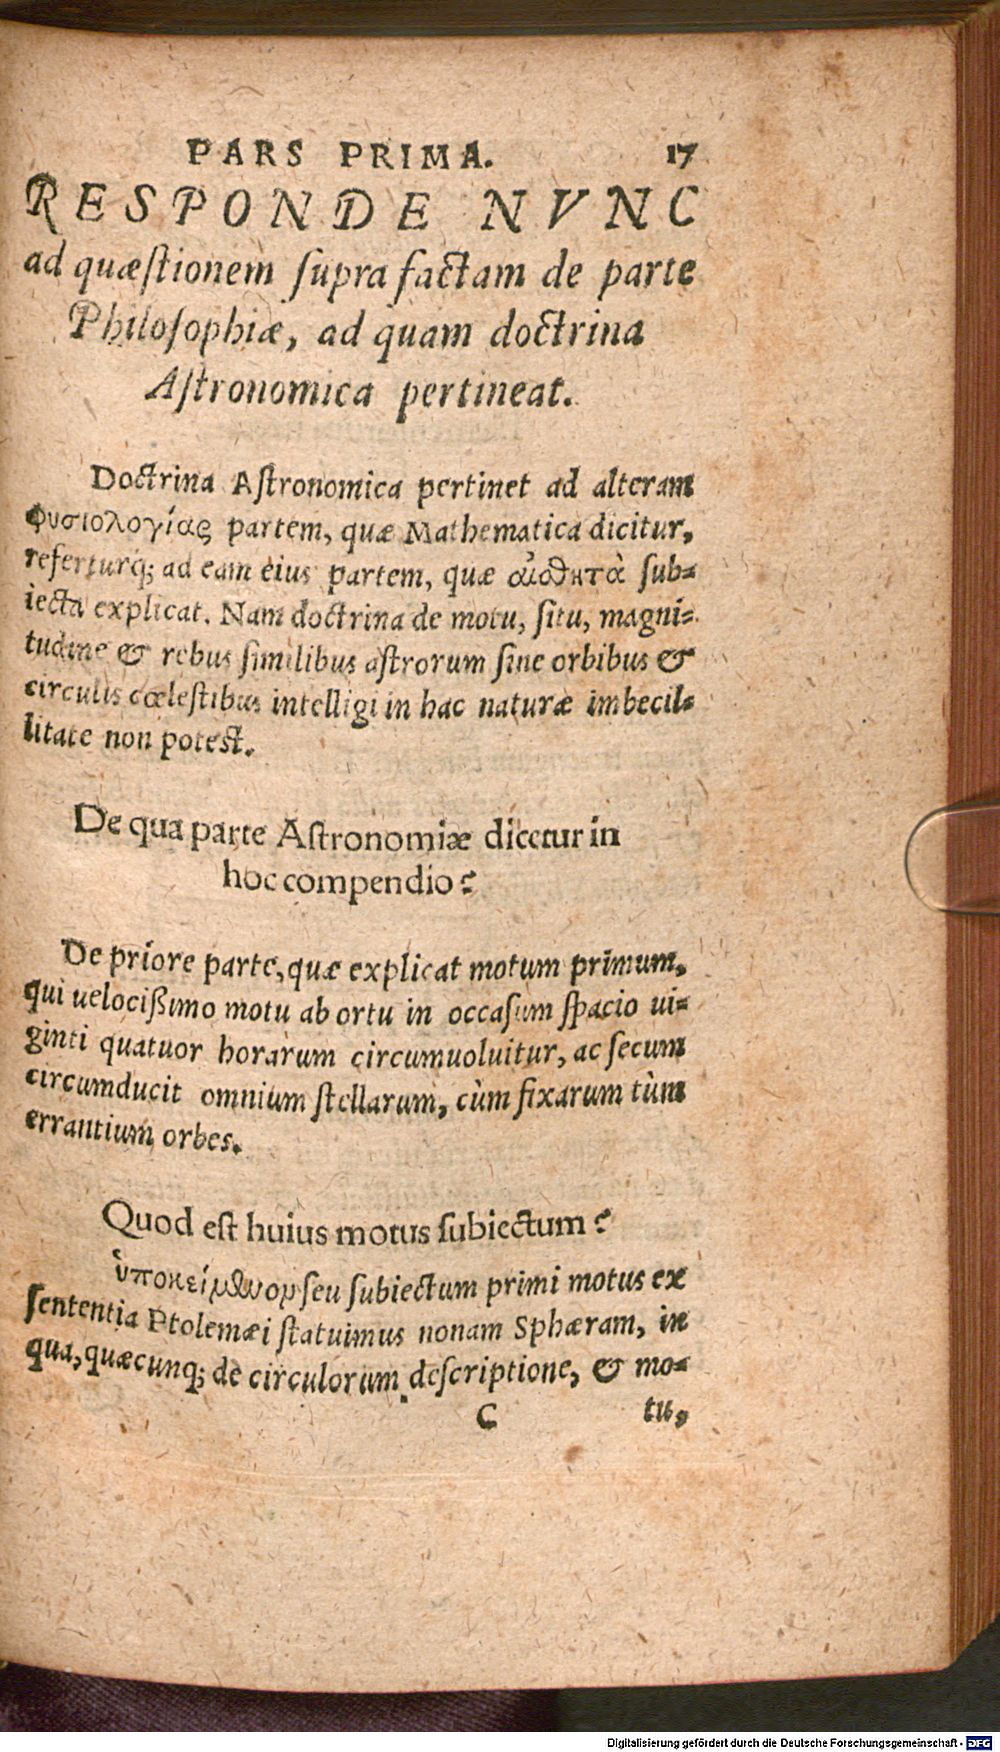 PARS PRIMA. 17
RESPONDE NVNC
ad quæſtionem ſupra factam de parte
Philoſophiæ, ad quam doctrina
Aſtronomica pertineat.
Doctrina Aſtronomica pertinet ad alteram
φυσιολογίας partem, quæ Mathematica dicitur,
referturq́; ad eam eius partem, quæ αἰσθητὰ ſub=
iecta explicat. Nam doctrina de motu, ſitu, magni=
tudine & rebus ſimilibus aſtrorum ſine orbibus &
circulis cœleſtibus intelligi in hac naturæ imbecil=
litate non poteſt.
De qua parte Aſtronomiæ dicetur in
hoc compendio?
De priore parte, quæ explicat motum primum,
qui uelociſsimo motu ab ortu in occaſum ſpacio ui=
ginti quatuor horarum circumuoluitur, ac ſecum
circumducit omnium ſtellarum, cùm fixarum tùm
errantium orbes.
Quod eſt huius motus ſubiectum?
ὑποκείμενον ſeu ſubiectum primi motus ex
ſententia Ptolemæi ſtatuimus nonam Sphæram, in
qua, quæcunq; de circulorum deſcriptione, & mo=
C tu,
Digitalisierung gefördert durch die Deutsche Forschungsgemeinschaft - DFG